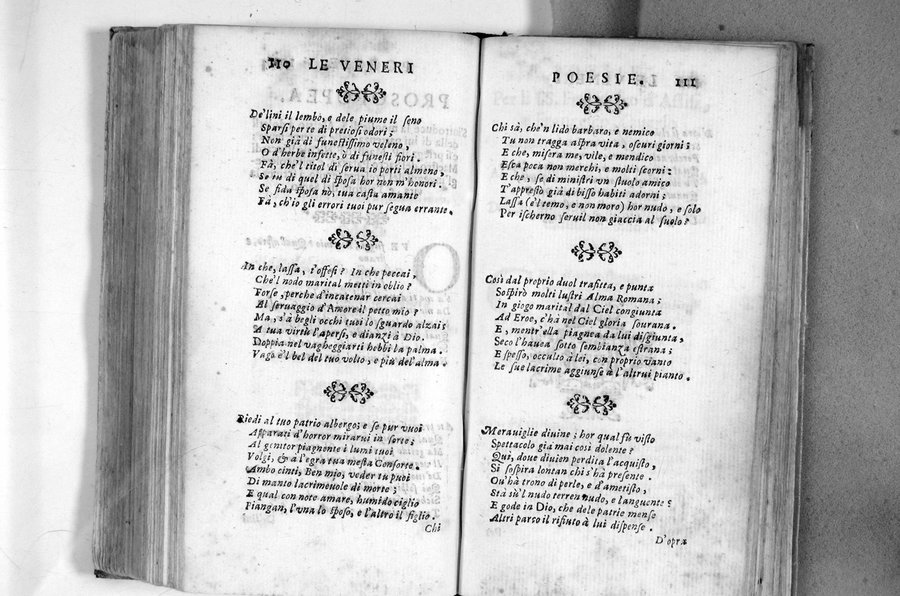 110 LE VENERI
De'lini il lembo, e dele piume il seno
Sparsi per te di pretiosi odori;
Non già di funestissimo veleno,
O d'herbe infette, ò di funesti fiori.
Fà, che'l titol di serua io porti almeno,
Se tu di quel di sposa hor non m'honori.
Se fida sposa nò, tua casta amante
Fà, ch'io gli errori tuoi pur segua errante.
In che, lassa, t'offesi? In che peccai,
Che'l nodo marital metti in oblio?
Forse, perche d'incatenar cercai
Al seruaggio d'Amore il petto mio?
Ma, s'à begli occhi tuoi lo sguardo alzai;
A tua virtù l'apersi, e dianzi à Dio.
Doppia nel vagheggiarti hebbi la palma.
Vaga è'l bel del tuo volto, e più del'alma.
Riedi al tuo patrio albergo; e se pur vuoi
Apparati d'horror mirarui in sorte;
Al genitor piagnonte i lumi tuoi
Volgi, & a l'egra tua mesta Consorte.
Ambo cinti, Ben mio, veder tu puoi
Di manto lacrimeuole di morte;
E qual con note amare, humido ciglio
Piangan, l'vna lo sposo, e l'altro il figlio.
Chi
POESIE. 111
Chi sà, che'n lido barbaro, e nemico
Tu non tragga aspra vita, oscuri giorni;
E che, misera me, vile, e mendico
Esca poca non merchi, e molti scorni:
E che, se di ministri vn stuolo amico
T'appresto già di bisso habiti adorni;
Lassa (e'l temo, e non moro) hor nudo, e solo
Per ischerno seruil non giaccia al suolo?
Così dal proprio duol trafitta, e punta
Sospirò molti lustri Alma Romana;
In giogo marital dal Ciel congiunta
Ad Eroe, c'hà nel Ciel gloria sourana.
E, mentr'ella piagnea da lui disgiunta,
Seco l'hauea sotto sembianza estrana;
E spesso, occulto à lei, con proprio vanto
Le sue lacrime aggiunse à l'altrui pianto.
Merauiglie diuine; hor qual fù visto
Spettacolo già mai così dolente?
Qui, doue diuien perdita l'acquisto,
Si sospira lontan chi s'hà presente.
Ou'hà trono di perle, e d'ametisto,
Stà sù'l nudo terren nudo, e languente;
E gode in Dio, che dele patrie mense
Altri parco il rifiuto à lui dispense.
D'opra